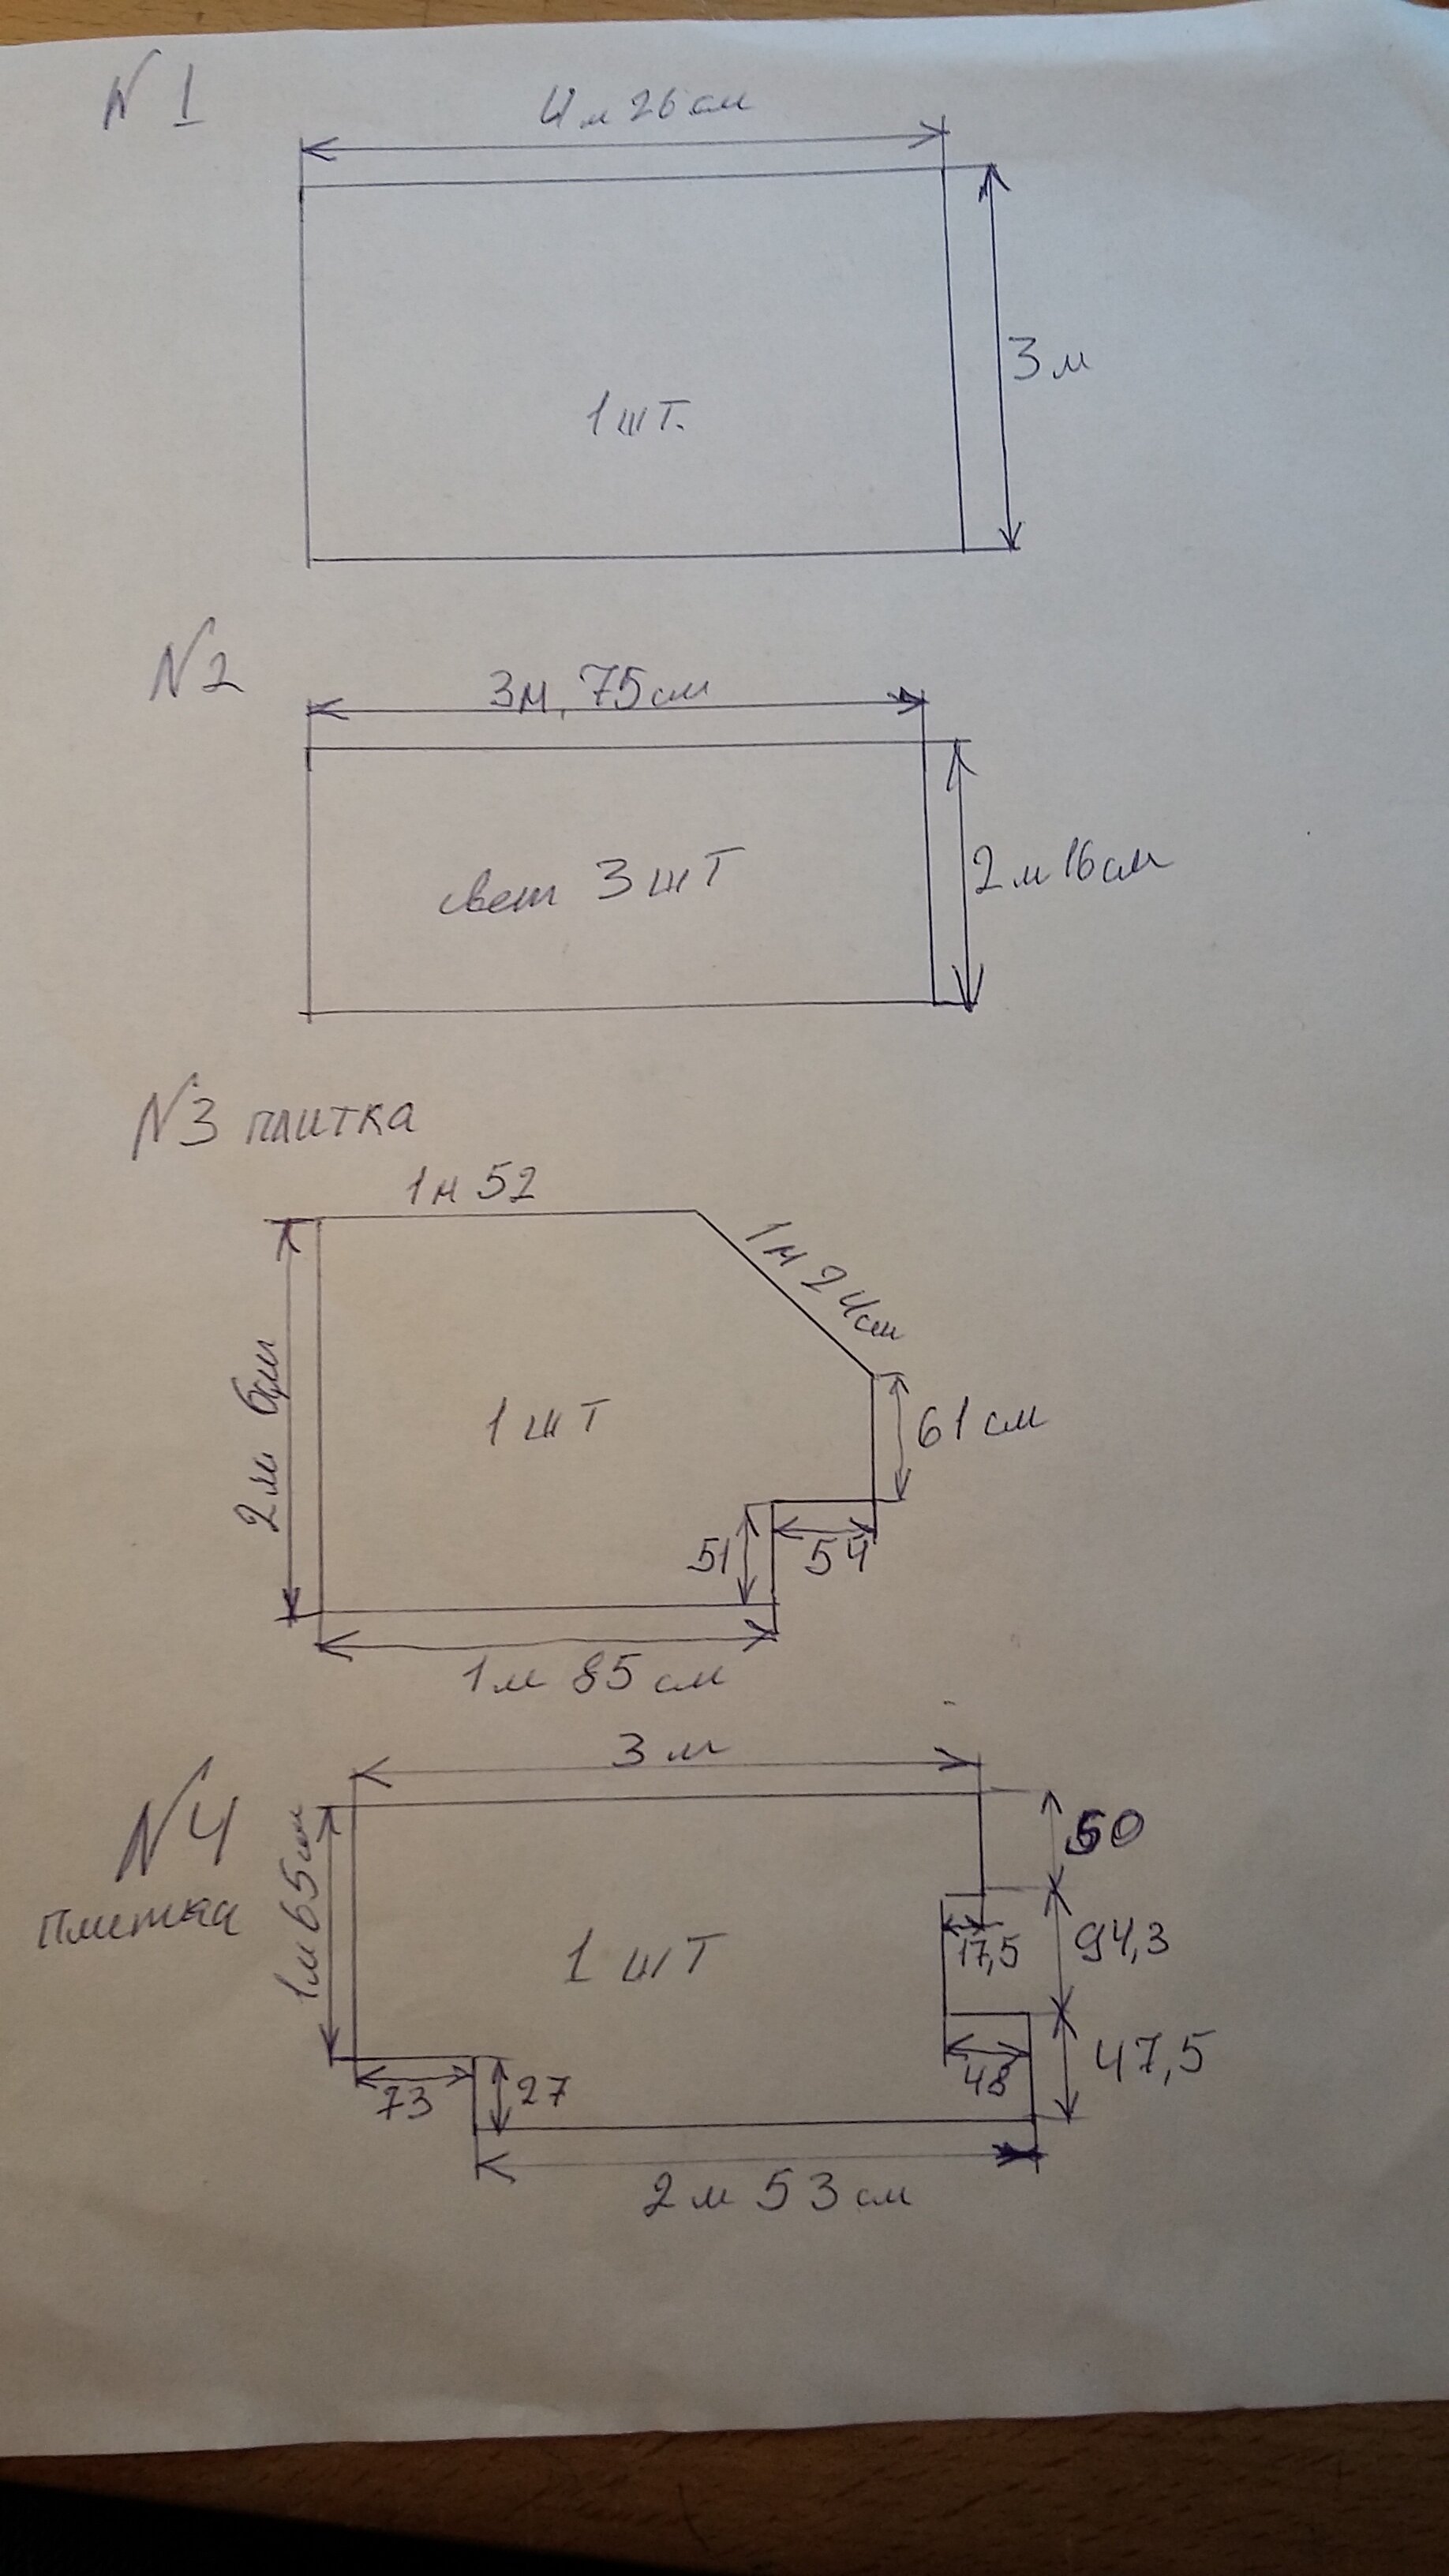 N 1
4 м 26 см
3 м
1 шт.
N2
3м, 75см
2 м 16см
свет 3 шт
N3 плитка
1м 52
1м 24см
2м 6см
1 шт
61 см
51
54
1м 85 см
3 м
N4
плитка
1м 65см
50
17,5
94,3
1 шт
48
47,5
73
27
2 м 53 см